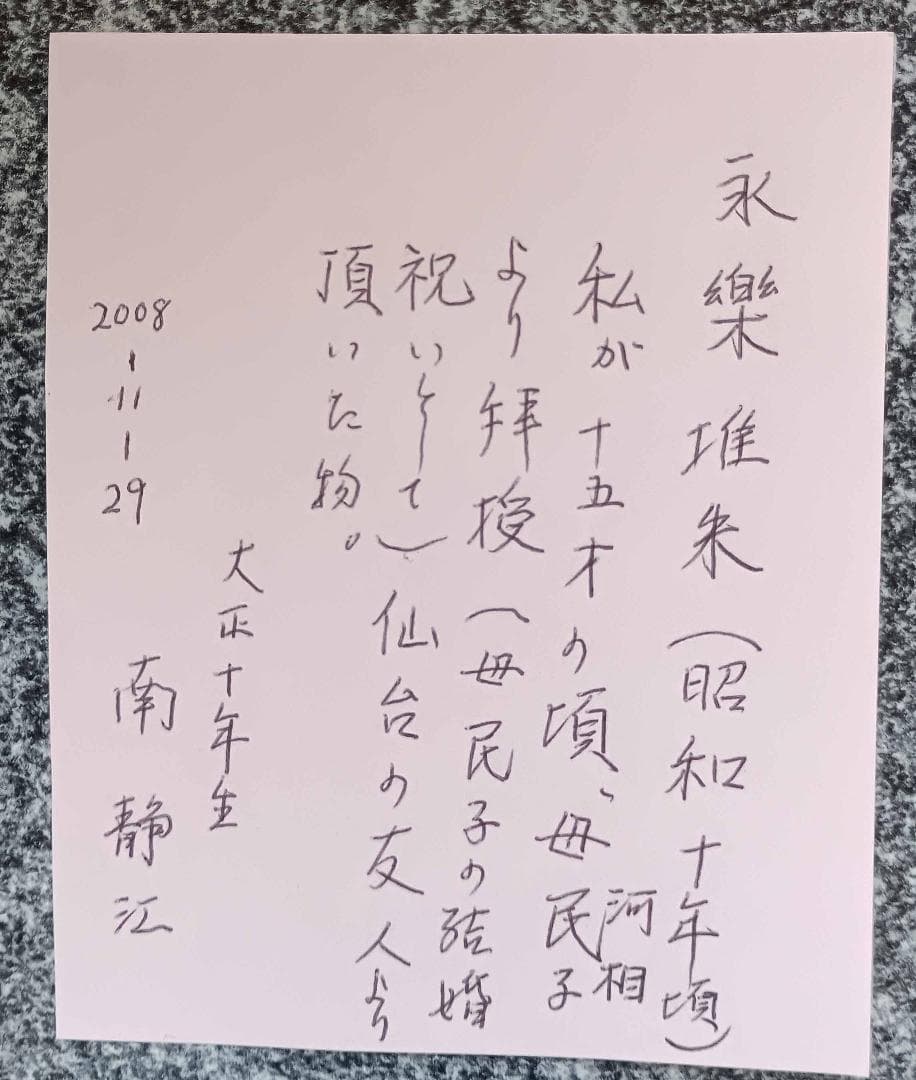 永樂堆朱(昭和十年頃)
私が十五才の頃、母河相民子
より拝授(母民子の結婚
祝いとして)仙台の友人より
頂いた物。
大正十年生
南静江
2008-11-29